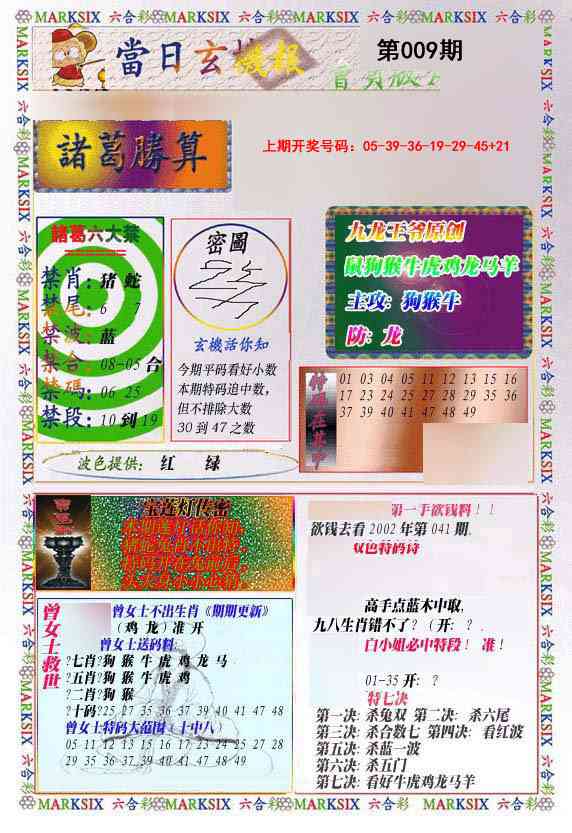 MARKSIX 六合彩 MARKSIX 六合彩 MARKSIX 六合彩 MARKSIX 六合彩
當日玄機報
第009期
諸葛勝算
上期开奖号码：05-39-36-19-29-45+21
諸葛六大禁
禁肖：猪 蛇
禁尾：6 7
禁波：蓝
禁合：08-05 合
禁碼：06 25
禁段：10 到 19
密圖
玄機活你知
今期平码看好小数
本期特码追中数，
但不排除大数
30 到 47 之数
九龙王爷原创
鼠狗猴牛虎鸡龙马羊
主攻：狗猴牛
防：龙
特码在其中
01 03 04 05 11 12 13 15 16
17 23 24 25 27 28 29 35 36
37 39 40 41 47 48 49
波色提供： 红 绿
宝莲灯传密
曾女士救世
曾女士不出生肖《期期更新》
（鸡 龙）准 开
曾女士送码料
?七肖?狗 猴 牛 虎 鸡 龙 马
?五肖?狗 猴 牛 虎 鸡
?二肖?狗 猴
?十码?25 27 35 36 37 39 40 41 47 48
曾女士特码大范围（十中八）
05 11 12 13 15 16 17 23 24 25 27 28
29 35 36 37 39 40 41 47 48 49
第一手欲钱料！！
欲钱去看 2002 年第 041 期.
双色特码诗
高手点蓝木中取，
九八生肖错不了？（开：？.
白小姐必中特段！ 准！
01-35 开：？
特七决
第一决：杀兔双 第二决：杀六尾
第三决：杀合数七 第四决：看红波
第五决：杀蓝一波
第六决：杀五门
第七决：看好牛虎鸡龙马羊
MARKSIX 六合彩 MARKSIX 六合彩 MARKSIX 六合彩 MARKSIX 六合彩